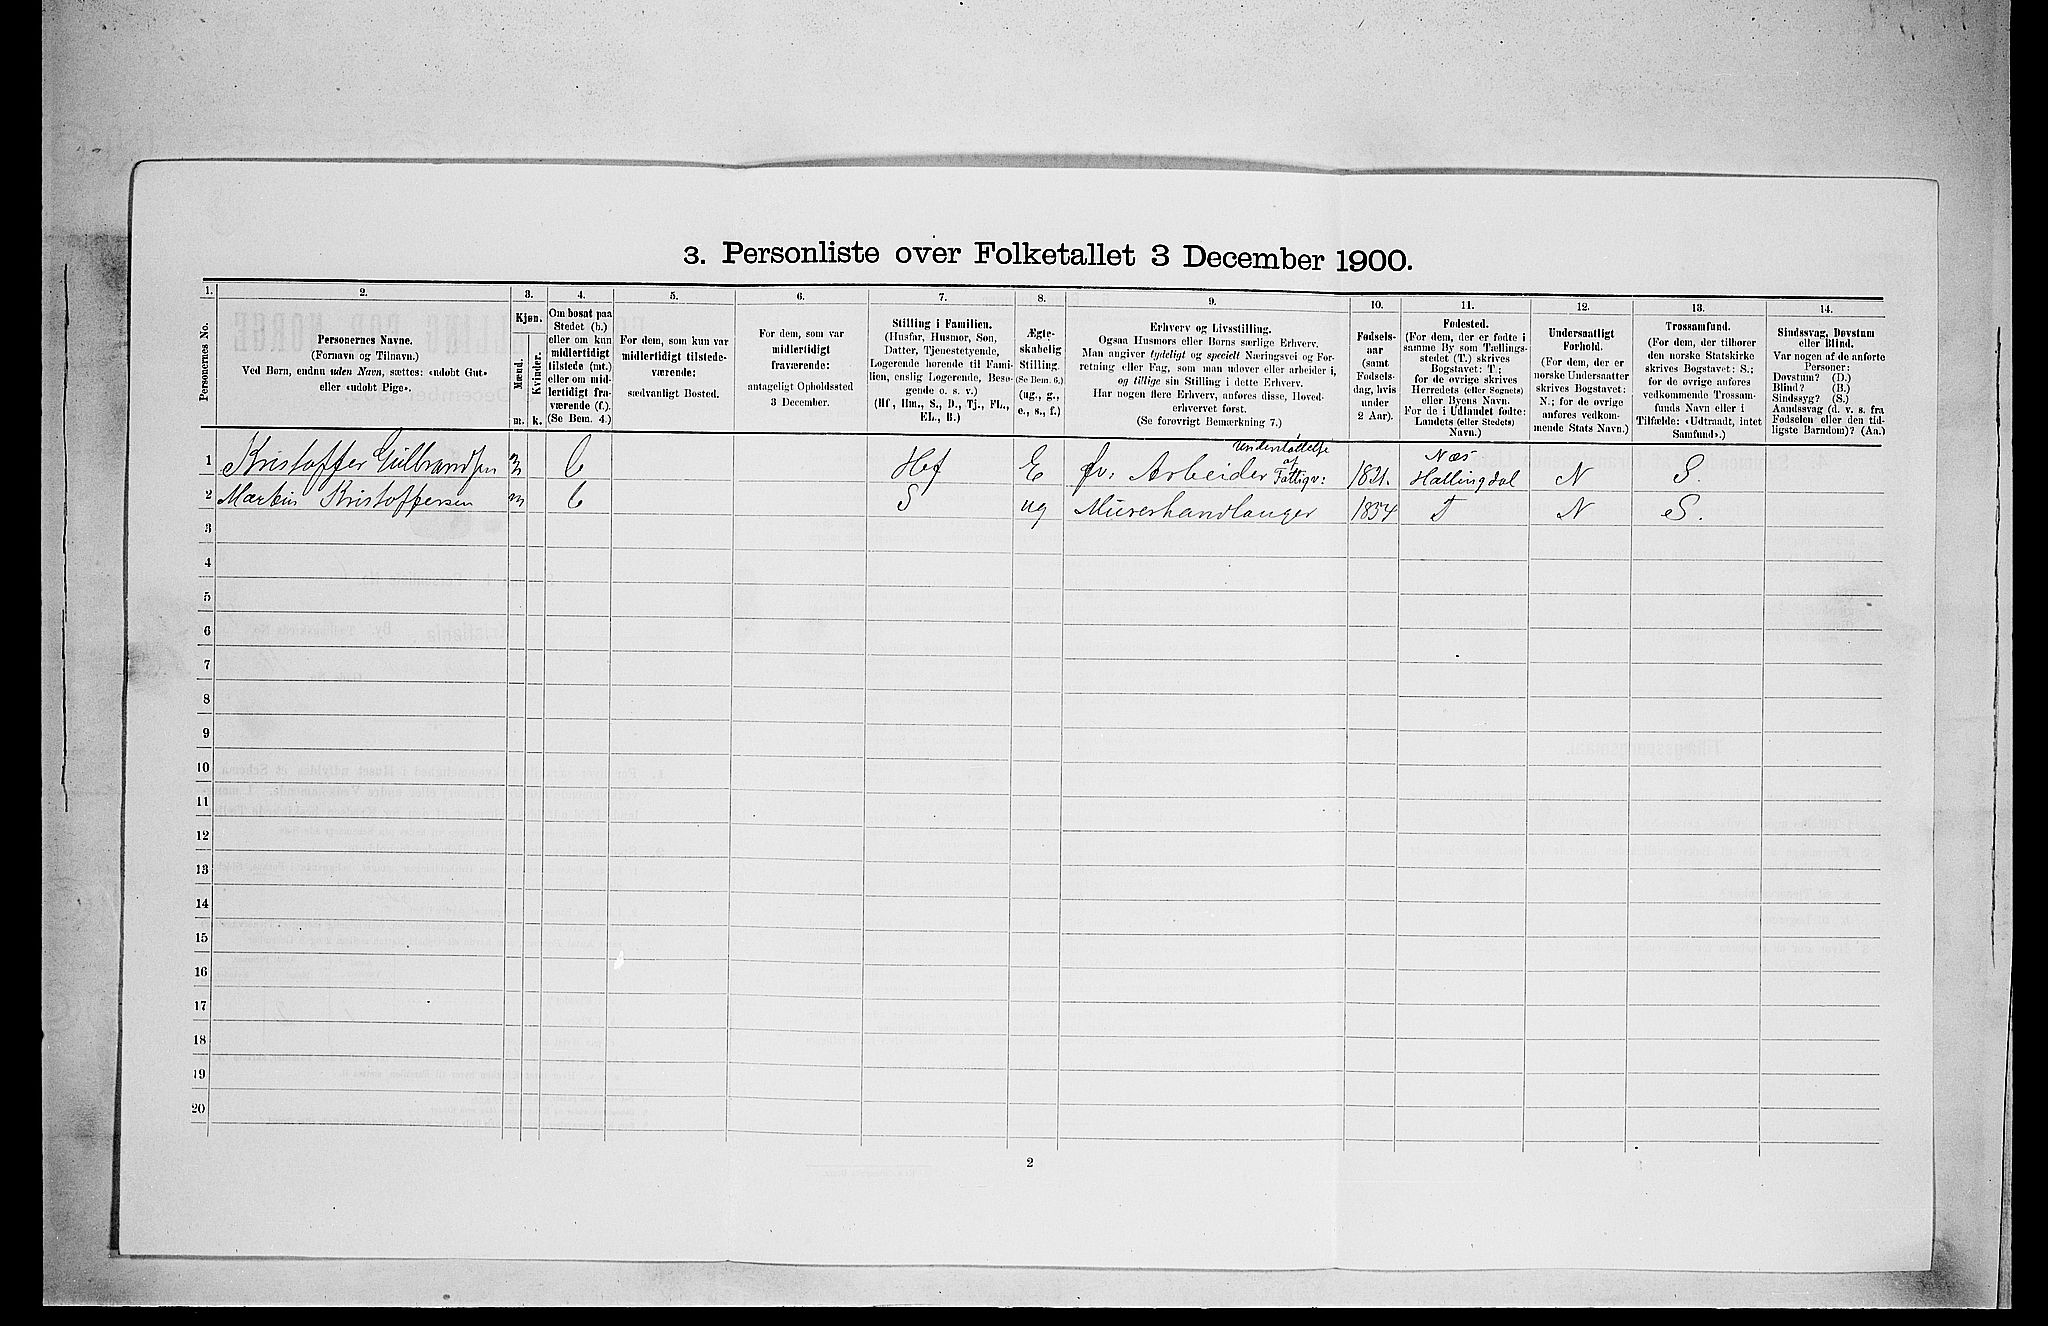 3. Personliste over Folketallet 3 December 1900.
1. 2. 3. 4. 5. 6. 7. 8. 9. 10. 11. 12. 13. 14.
Personernes No.
Personernes Navne.
(Fornavn og Tilnavn.)
Ved Børn, endnu uden Navn, sættes: «udøbt Gut»
eller «udøbt Pige».
Kjøn.
Mænd.
Kvinder.
m. k.
Om bosat paa
Stedet (b.)
eller om kun
midlertidigt
tilstede (mt.)
eller om mid-
lertidigt fra-
værende (f.).
(Se Bem. 4.)
For dem, som kun var
midlertidigt tilstede-
værende:
sædvanligt Bosted.
For dem, som var
midlertidigt
fraværende:
antageligt Opholdssted
3 December.
Stilling i Familien.
(Husfar, Husmor, Søn,
Datter, Tjenestetyende,
Logerende hørende til Fami-
lien, enslig Logerende, Besø-
gende o. s. v.)
(Hf, Hm., S., D., Tj., FL.,
EL., B.)
Ægte-
skabelig
Stilling.
(Se Bem. 6.)
(ug., g.,
e., s., f.)
Erhverv og Livsstilling.
Ogsaa Husmors eller Børns særlige Erhverv.
Man angiver tydeligt og specielt Næringsvei og For-
retning eller Fag, som man udøver eller arbeider i,
og tillige sin Stilling i dette Erhverv.
Har nogen flere Erhverv, anføres disse, Hoved-
erhvervet først.
(Se forøvrigt Bemærkning 7.)
Fødsels-
aar
(samt
Fødsels-
dag, hvis
under
2 Aar).
Fødested.
(For dem, der er fødte i
samme By som Tællings-
stedet (T.) skrives
Bogstavet: T;
for de øvrige skrives
Herredets (eller Sognets)
eller Byens Navn.
For de i Udlandet fødte:
Landets (eller Stedets)
Navn.)
Undersaatligt
Forhold.
(For dem, der er
norske Undersaatter
skrives Bogstavet:
N.; for de øvrige
anføres vedkom-
mende Stats Navn.)
Trossamfund.
(For dem, der tilhører
den norske Statskirke
skrives Bogstavet: S.;
for de øvrige anføres
vedkommende Trossam-
funds Navn eller i
Tilfælde: «Udtraadt, intet
Samfund».)
Sindssvag, Døvstum
eller Blind.
Var nogen af de anførte
Personer:
Døvstum? (D.)
Blind? (B.)
Sindssyg? (S.)
Aandssvag (d. v. s. fra
Fødselen eller den tid-
ligste Barndom)? (Aa.)
1 Kristoffer Gulbrandsen m b Hf E fv: Arbeider Understøttelse af Fattigv: 1821. Næs Hallingdal N S.
2 Martin Kristoffersen m b S ug Murerhandlanger 1854 T N S.
3
4
5
6
7
8
9
10
11
12
13
14
15
16
17
18
19
20
2